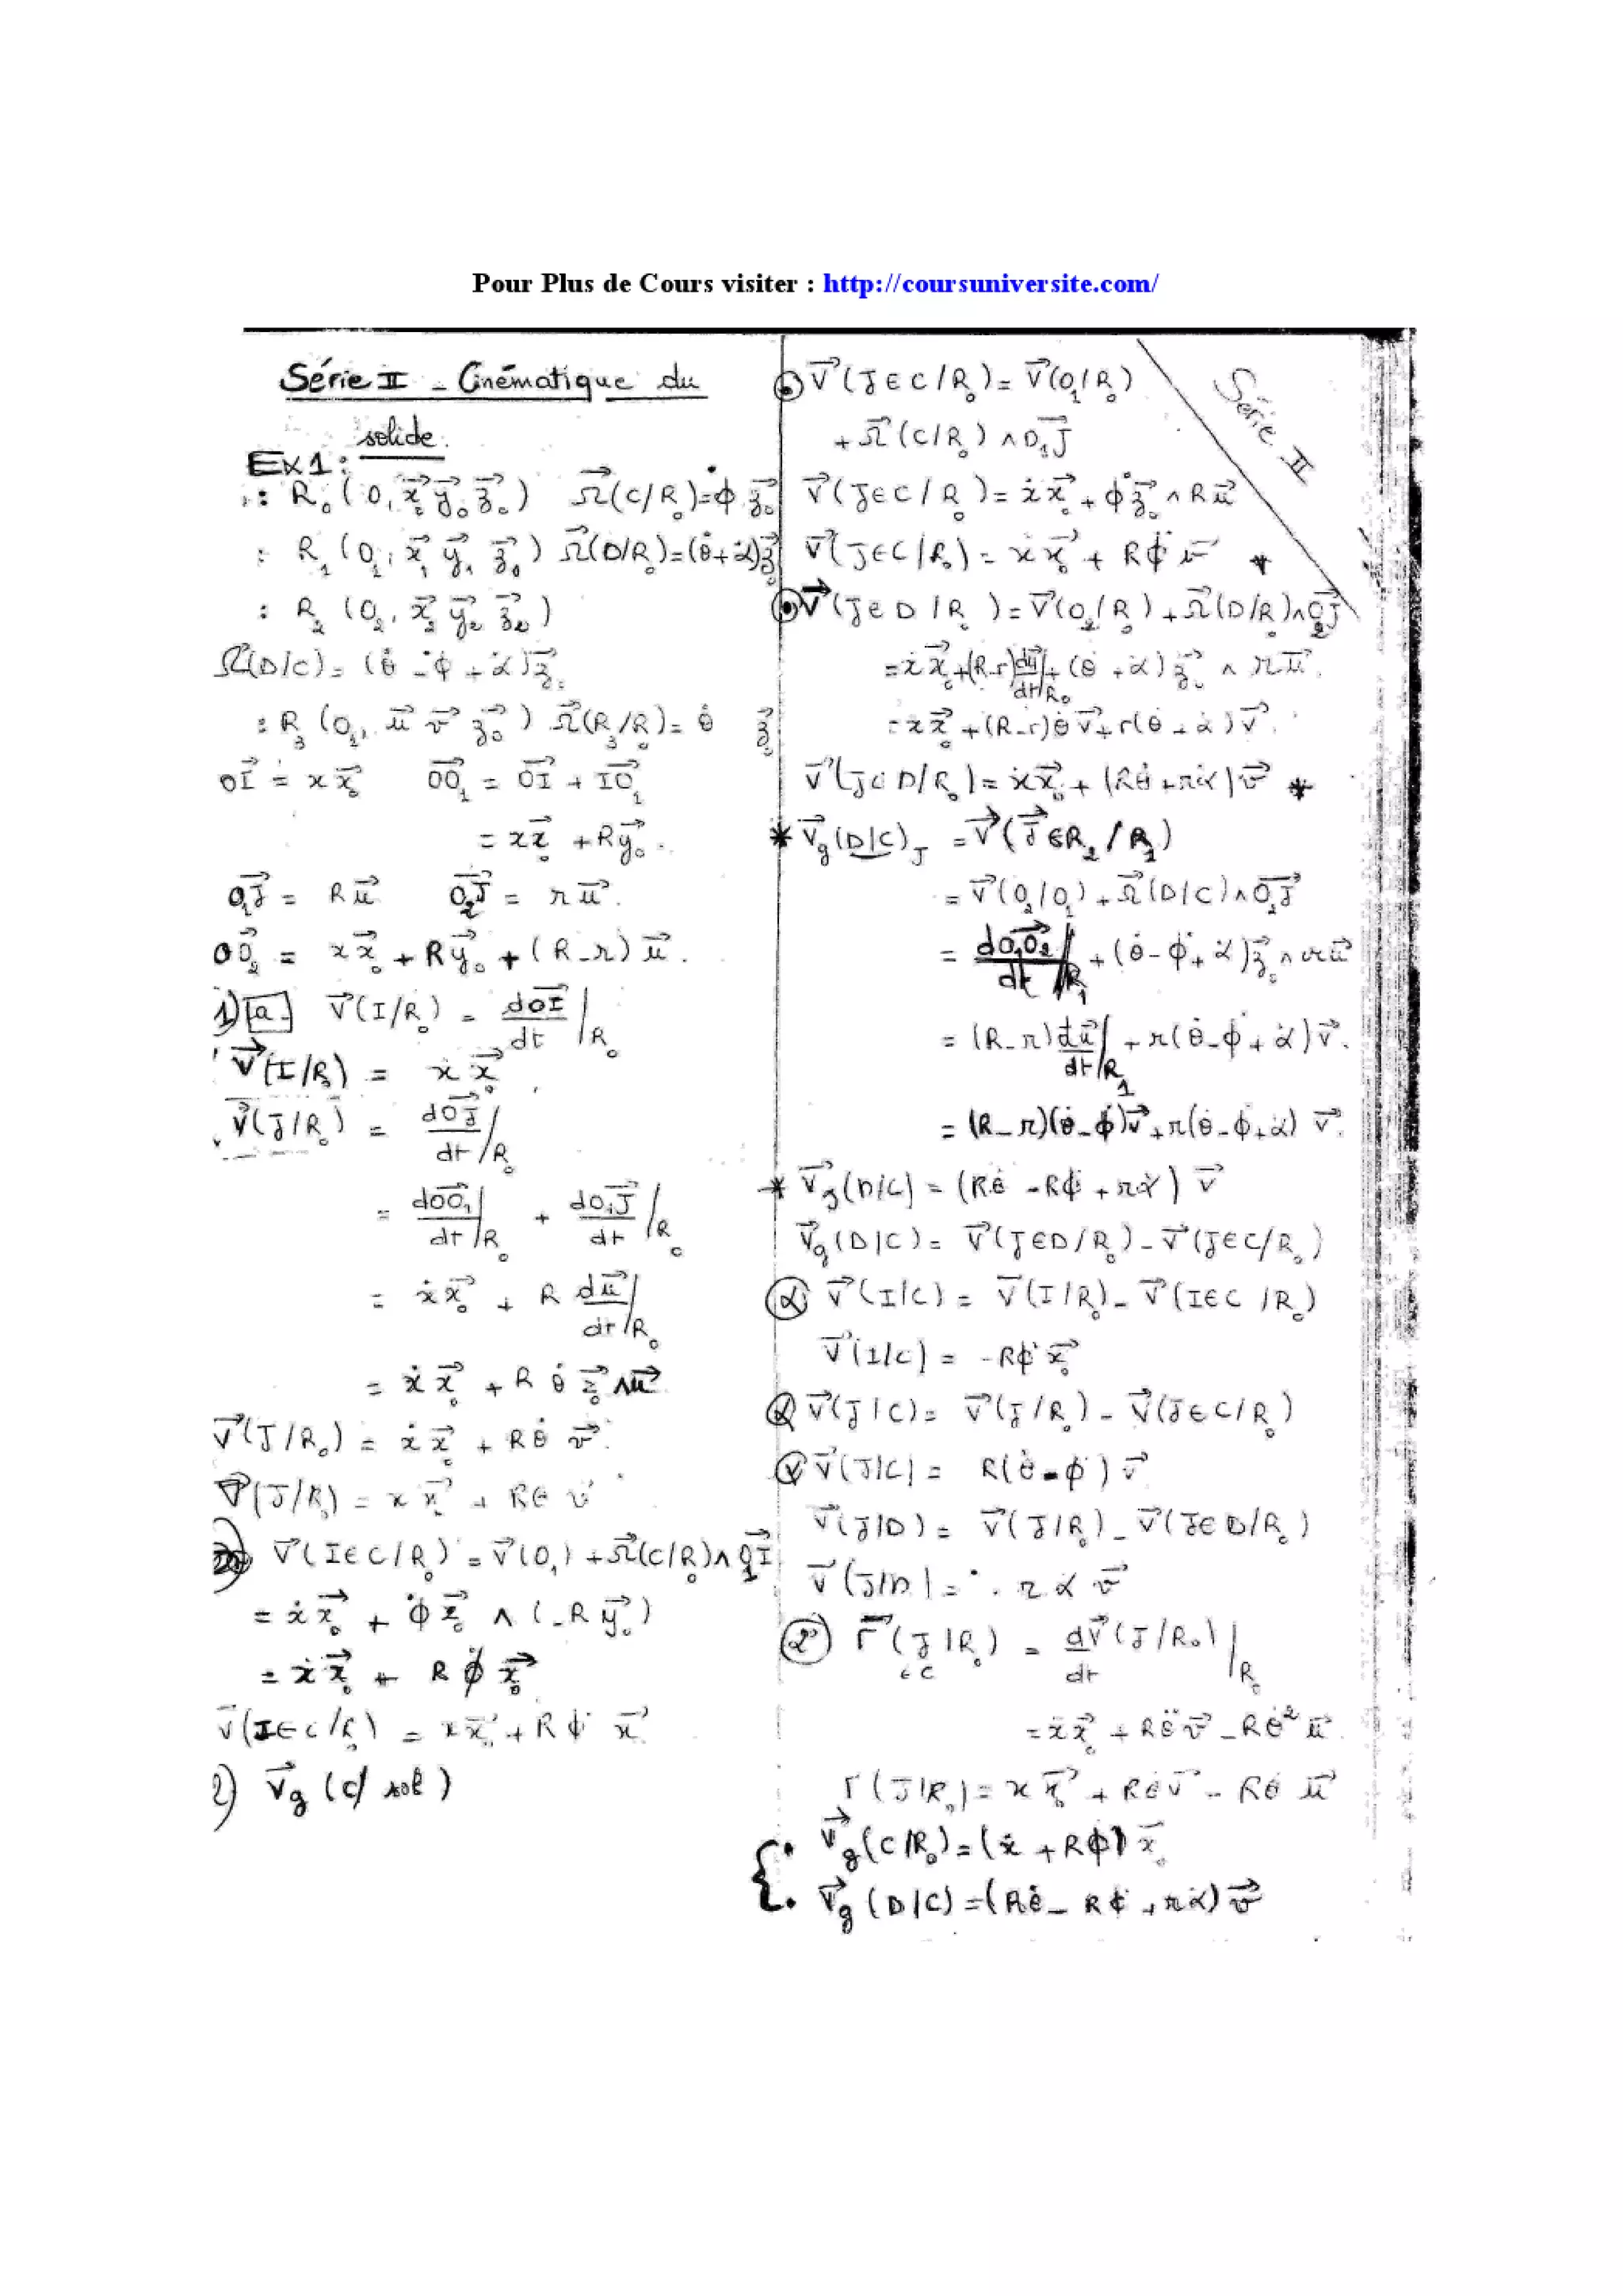 Pour Plus de Cours visiter : http://coursuniversite.com/
Série II - Cinématique du
solide.
Ex1:
: R₀(O, x⃗₀ y⃗₀ z⃗₀) Ω⃗(C/R₀)=φ̇ z⃗₀
: R₁(O₁, x⃗₁ y⃗₁ z⃗₀) Ω⃗(D/R₀)=(θ̇+α̇)z⃗₀
: R₂(O₂, x⃗₂ y⃗₂ z⃗₀)
Ω⃗(D/C)=(θ̇-φ̇+α̇)z⃗₀
: R₃(O₁, u⃗ v⃗ z⃗₀) Ω⃗(R₃/R₀)= θ̇ z⃗₀
OI⃗ = x x⃗₀ OO₁⃗ = OI⃗ + IO₁⃗
= x x⃗₀ + R y⃗₀.
O₁J⃗ = R u⃗ O₂J⃗ = r u⃗.
OO₂⃗ = x x⃗₀ + R y⃗₀ + (R-r) u⃗.
1) a. V⃗(I/R₀) = dOI⃗/dt /R₀
V⃗(I/R₀) = ẋ x⃗₀
V⃗(J/R₀) = dOJ⃗/dt /R₀
= dOO₁⃗/dt /R₀ + dO₁J⃗/dt /R₀
= ẋ x⃗₀ + R du⃗/dt /R₀
= ẋ x⃗₀ + R θ̇ z⃗₀ ∧ u⃗
V⃗(J/R₀) = ẋ x⃗₀ + R θ̇ v⃗.
V⃗(J/R₀) = x x⃗₀ + Rθ v⃗
V⃗(I∈C/R₀) = V⃗(O₁) + Ω⃗(C/R₀)∧O₁I⃗
= ẋ x⃗₀ + φ̇ z⃗₀ ∧ (-R y⃗₀)
= ẋ x⃗₀ + R φ̇ x⃗₀
V⃗(I∈C/R₀) = x x⃗₀ + R φ̇ x⃗
2) V⃗g (C/sol)
V⃗(J∈C/R₀) = V⃗(O₁/R₀)
+ Ω⃗(C/R₀) ∧ O₁J⃗
Série II
V⃗(J∈C/R₀) = ẋ x⃗₀ + φ̇ z⃗₀ ∧ R u⃗
V⃗(J∈C/R₀) = x x⃗₀ + Rφ̇ v⃗ *
V⃗(J∈D/R₀) = V⃗(O₂/R₀) + Ω⃗(D/R₀)∧O₂J⃗
= ẋ x⃗₀ + (R-r) du⃗/dt /R₀ + (θ̇+α̇) z⃗₀ ∧ r u⃗.
= x x⃗₀ + (R-r)θ̇ v⃗ + r(θ̇+α̇)v⃗.
V⃗(J∈D/R₀) = ẋx⃗₀ + (Rθ̇ + rα̇)v⃗ *
* V⃗g(D/C)J = V⃗(J∈R₂/R₁)
= V⃗(O₂/O₁) + Ω⃗(D/C)∧O₂J⃗
= dO₁O₂⃗/dt /R₁ + (θ̇-φ̇+α̇)z⃗₀ ∧ r u⃗
= (R-r) du⃗/dt /R₁ + r(θ̇-φ̇+α̇)v⃗.
= (R-r)(θ̇-φ̇)v⃗ + r(θ̇-φ̇+α̇) v⃗.
* V⃗g(D/C) = (Rθ̇ - Rφ̇ + rα̇) v⃗
V⃗g(D/C) = V⃗(J∈D/R₀) - V⃗(J∈C/R₀)
V⃗(I/C) = V⃗(I/R₀) - V⃗(I∈C/R₀)
V⃗(I/C) = -Rφ̇ x⃗₀
V⃗(J/C) = V⃗(J/R₀) - V⃗(J∈C/R₀)
V⃗(J/C) = R(θ̇-φ̇) v⃗
V⃗(J/D) = V⃗(J/R₀) - V⃗(J∈D/R₀)
V⃗(J/D) = . r α̇ v⃗
2°) Γ⃗(J/R₀) = dV⃗(J/R₀)/dt /R₀
∈C
= ẍ x⃗₀ + Rθ̈ v⃗ - Rθ̇² u⃗
Γ(J/R₀) = x x⃗₀ + Rθ v⃗ - Rθ u⃗
V⃗g(C/R₀) = (ẋ + Rφ̇) x⃗₀
V⃗g(D/C) = (Rθ̇ - Rφ̇ + rα̇) v⃗